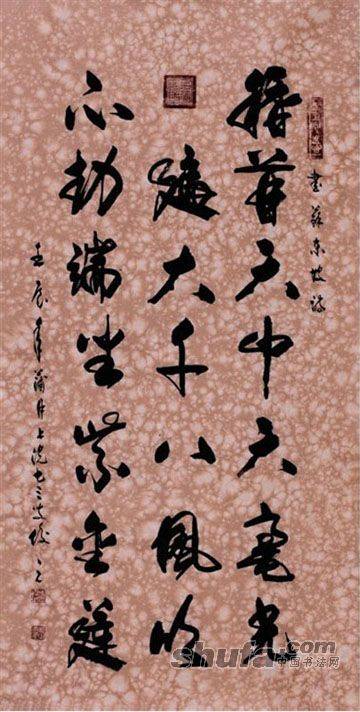 書蘇東坡詩
稽首天中天毫光
遍大千八風吹
不動端坐紫金蓮
壬辰年蒲月上浣七三叟
shufa.com
中国书法网